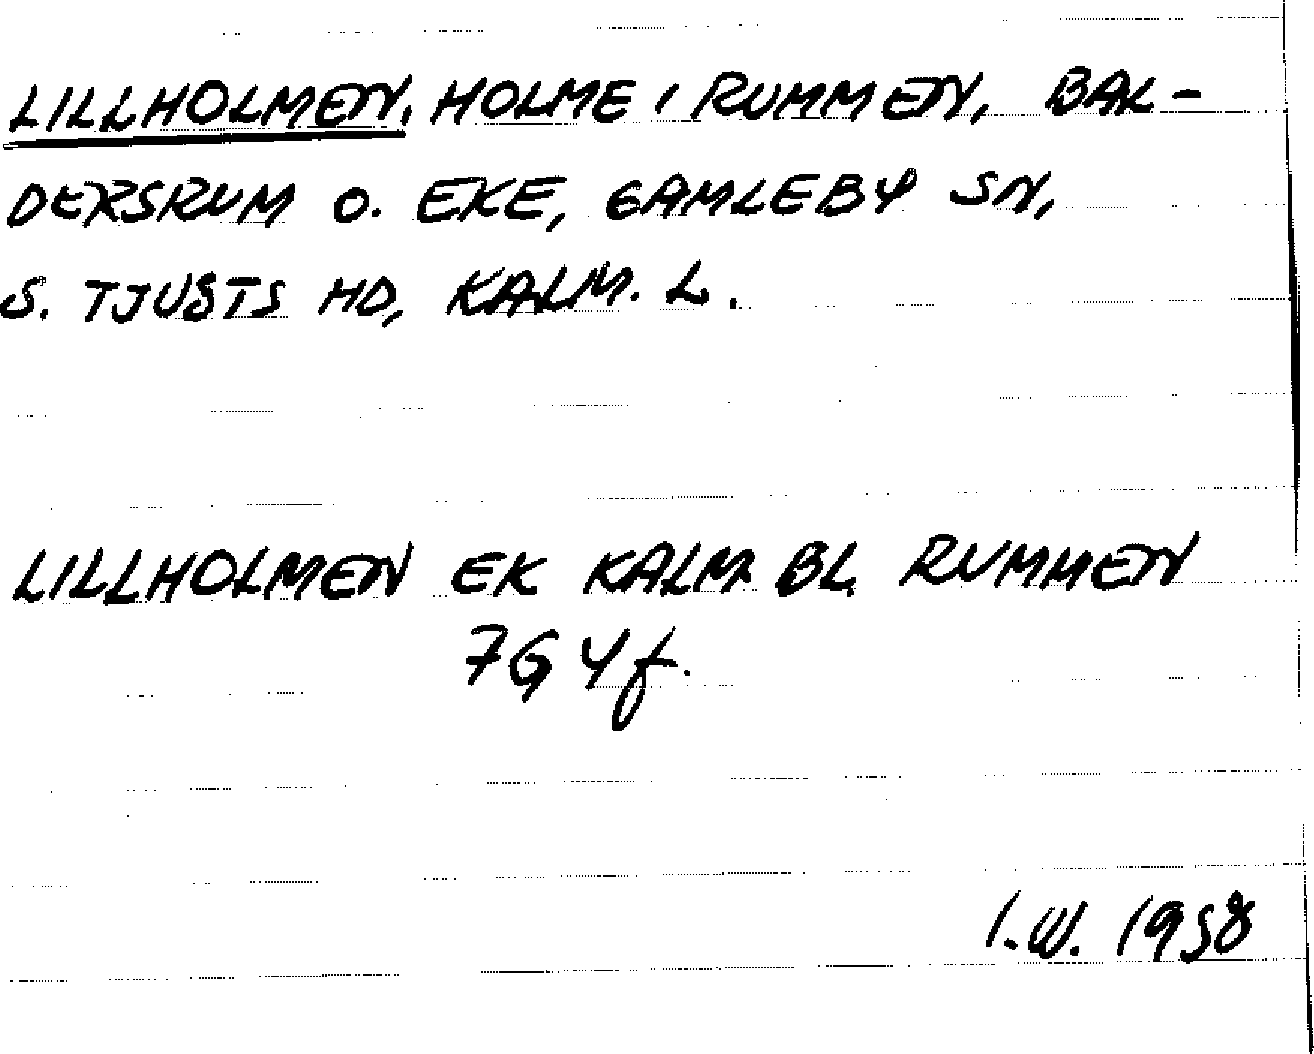 LILLHOLMEN, HOLME I RUMMEN, BAL-
DERSRUM O. EKE, GAMLEBY SN,
S. TJUSTS HD, KALM. L.
LILLHOLMEN EK KALM BL. RUMMEN
7G 4f.
I.W. 1958